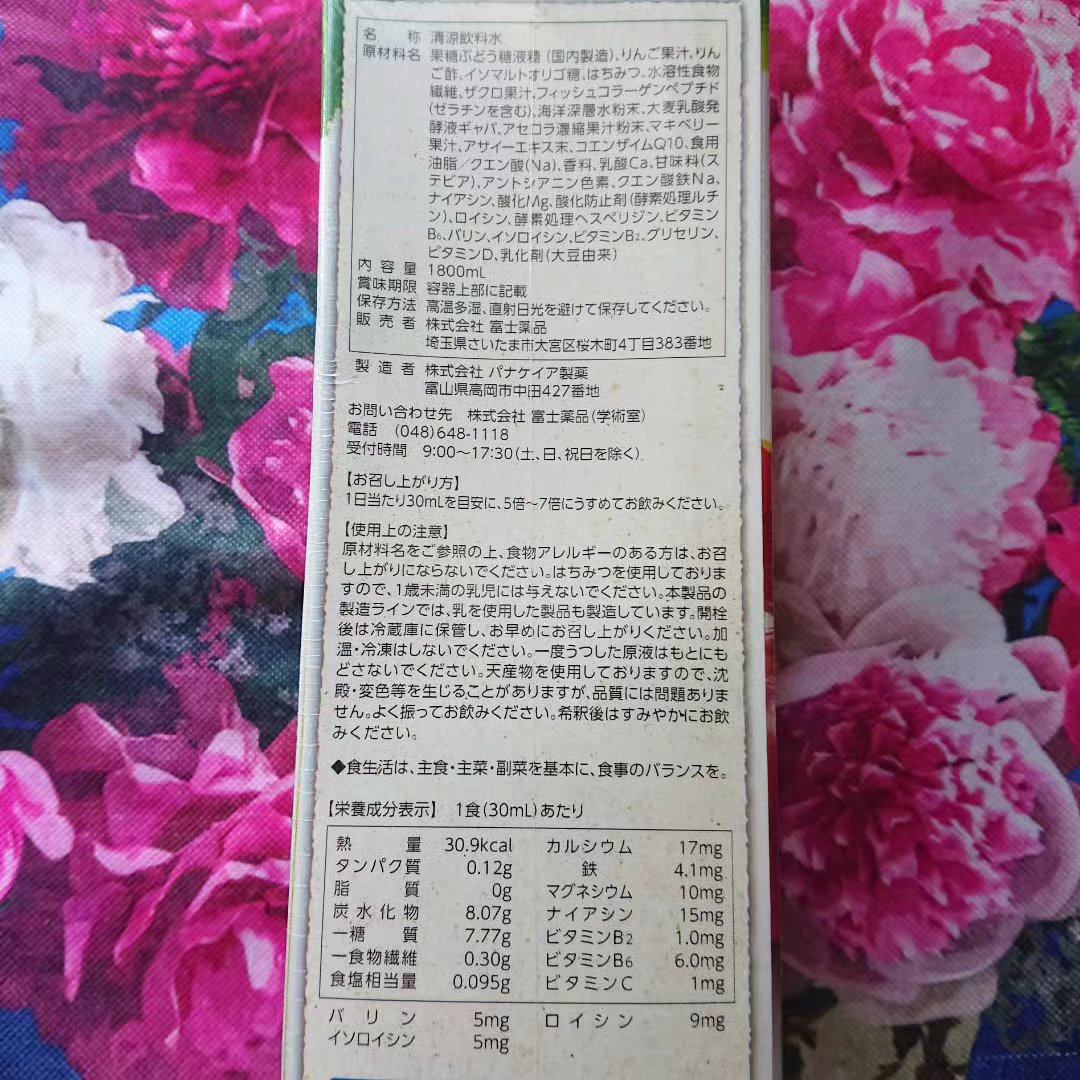 名称 清涼飲料水
原材料名 果糖ぶどう糖液糖(国内製造)、りんご果汁、りん
ご酢、イソマルトオリゴ糖、はちみつ、水溶性食物
繊維、ザクロ果汁、フィッシュコラーゲンペプチド
(ゼラチンを含む)、海洋深層水粉末、大麦乳酸発
酵液ギャバ、アセロラ濃縮果汁粉末、マキベリー
果汁、アサイーエキス末、コエンザイムQ10、食用
油脂/クエン酸(Na)、香料、乳酸Ca、甘味料(ス
テビア)、アントシアニン色素、クエン酸鉄Na、
ナイアシン、酸化Mg、酸化防止剤(酵素処理ルチ
ン)、ロイシン、酵素処理ヘスペリジン、ビタミン
B6、バリン、イソロイシン、ビタミンB2、グリセリン、
ビタミンD、乳化剤(大豆由来)
内容量 1800mL
賞味期限 容器上部に記載
保存方法 高温多湿、直射日光を避けて保存してください。
販売者 株式会社 富士薬品
埼玉県さいたま市大宮区桜木町4丁目383番地
製造者 株式会社 パナケイア製薬
富山県高岡市中田427番地
お問い合わせ先 株式会社 富士薬品(学術室)
電話 (048)648-1118
受付時間 9:00～17:30(土、日、祝日を除く)
【お召し上がり方】
1日当たり30mLを目安に、5倍～7倍にうすめてお飲みください。
【使用上の注意】
原材料名をご参照の上、食物アレルギーのある方は、お召
し上がりにならないでください。はちみつを使用しておりま
すので、1歳未満の乳児には与えないでください。本製品の
製造ラインでは、乳を使用した製品も製造しています。開栓
後は冷蔵庫に保管し、お早めにお召し上がりください。加
温・冷凍はしないでください。一度うつした原液はもとにも
どさないでください。天産物を使用しておりますので、沈
殿・変色等を生じることがありますが、品質には問題ありま
せん。よく振ってお飲みください。希釈後はすみやかにお飲
みください。
◆食生活は、主食・主菜・副菜を基本に、食事のバランスを。
【栄養成分表示】 1食(30mL)あたり
熱量 30.9kcal カルシウム 17mg
タンパク質 0.12g 鉄 4.1mg
脂質 0g マグネシウム 10mg
炭水化物 8.07g ナイアシン 15mg
－糖質 7.77g ビタミンB2 1.0mg
－食物繊維 0.30g ビタミンB6 6.0mg
食塩相当量 0.095g ビタミンC 1mg
バリン 5mg ロイシン 9mg
イソロイシン 5mg